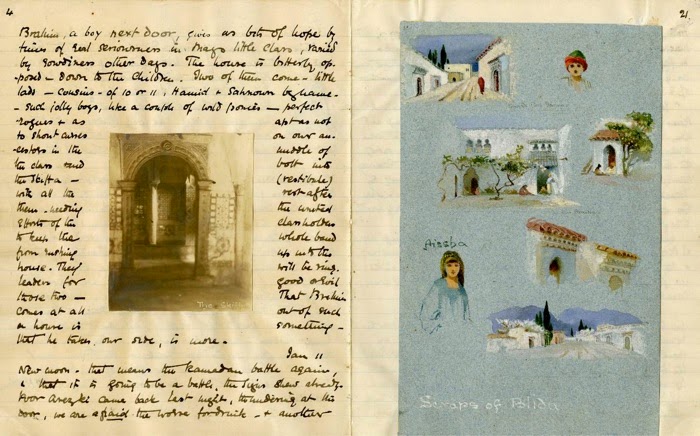 4
Brahim, a boy next door, gives us lots of hope by
times of real seriousness in May's little class, varied
by rowdiness other days. The house is bitterly op-
-posed - down to the children. Two of them come - little
lads - cousins - of 10 or 11, Hamid & Sahnoun by name -
- such jolly boys, like a couple of wild ponies - perfect
rogues & as apt as not
to shout curses on our an-
-cestors in the middle of
the class and bolt into
the skiffa - (vestibule)
with all the rest after
them - needing the united
efforts of the class holders
to keep the whole band
from rushing up into the
house. They will be ring-
leaders for good or evil
those two - That Brahim
comes at all out of such
a house is something -
that he takes our side, is more -
The Skiffa
Jan 11
New moon - that means the Ramadan battle again,
& that it is going to be a battle, the signs shew already.
Poor Arezki came back last night, thundering at the
door, we are afraid the worse for drink - & another
21
Aissha
Scraps of Blida